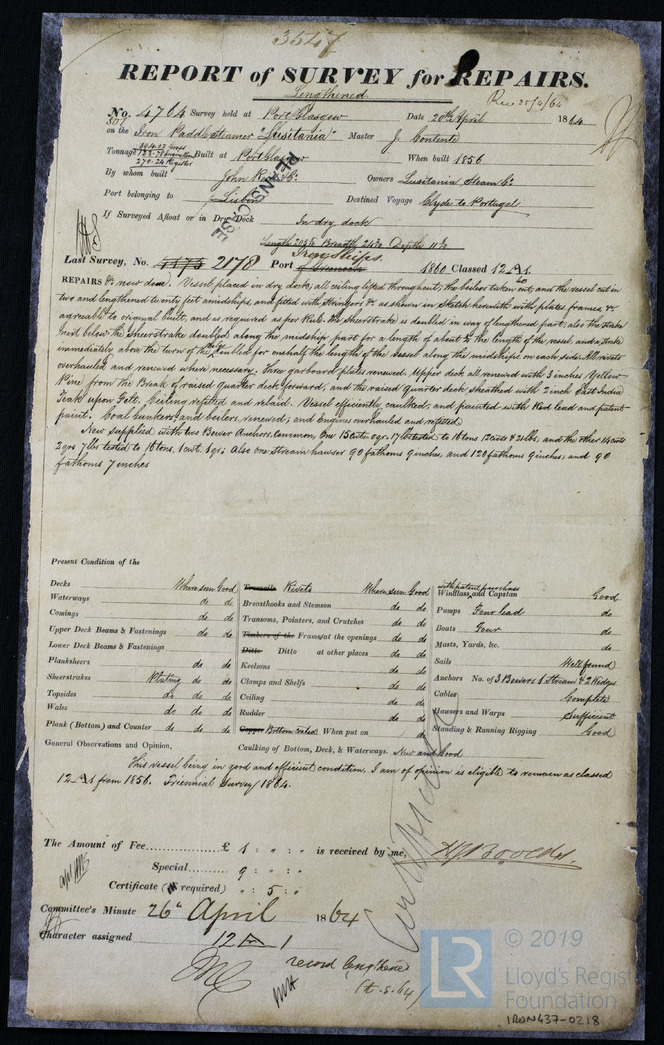 3547
REPORT of SURVEY for REPAIRS.
Lengthened
Rec 25/4/64
No. 4764 Survey held at Port Glasgow Date 20th April 1864
on the Iron Paddle Steamer "Lusitania" Master J. Contente
Tonnage Built at Port Glasgow When built 1856
270.24 Register
By whom built John Owners Lusitania Steam Co.
Port belonging to Lisbon Destined Voyage Clyde to Portugal
If Surveyed Afloat or in Dry Dock In dry dock
Length 205 Breadth Depth
Iron Ships.
Last Survey, No. 2178 Port 1860 Classed 12 A1
REPAIRS &c now done. Vessel placed in dry dock, all ceiling lifted throughout, the boilers taken out, and the vessel cut in
two and lengthened twenty feet amidships, and fitted with Stringers &c as shewn in Sketch herewith with plates frames &c
agreeable to original built, and as required as per Rule. the Sheerstrake is doubled in way of lengthened part; also the strake
next below the Sheerstrake doubled along the midship part for a length of about the length of the vessel, and a strake
immediately above the turn of the doubled for one half the length of the vessel along the midships on each side. All rivets
overhauled and renewed where necessary. Three garboard plates renewed. Upper deck all renewed with 3 inches Yellow
Pine from the Break of raised quarter deck forward; and the raised Quarter deck sheathed with 2 inch East India
Teak upon Felt. Ceiling refitted and relaid. Vessel efficiently caulked, and painted with Red lead and patent
paint. Coal bunkers and boilers, renewed; and Engines overhauled and refitted.
New supplied with two Bower Anchors, Common, One 15 cwts 0 qr. 17 lbs tested to 16 tons 12 cwts & 21 lbs, and the other 14 cwts
2 qrs 7 lbs tested to 16 tons, 1 cwt. 1 qr; Also one Stream hawser 90 fathoms 9 inches, and 120 fathoms 9 inches; and 90
fathoms 7 inches
Present Condition of the
Decks Where seen Good
Waterways do do
Comings do do
Upper Deck Beams & Fastenings do do
Lower Deck Beams & Fastenings
Planksheers do do
Sheerstrakes Plating do do
Topsides do do
Wales do do
Plank (Bottom) and Counter do do
Treenails Rivets Where seen Good
Breasthooks and Stemson do do
Transoms, Pointers, and Crutches do do
Timbers of the Frame/at the openings do do
Ditto Ditto at other places do do
Keelsons do do
Clamps and Shelfs do do
Ceiling do do
Rudder do do
Copper Bottom When put on do
Caulking of Bottom, Deck, & Waterways. New and Good
with patent purchase
Windlass, and Capstan Good
Pumps Four lead do
Boats Four do
Masts, Yards, &c. do
Sails Well found
Anchors No. of 3 Bowers 1 Stream & 2 Kedges
Cables Complete
Hawsers and Warps Sufficient
Standing & Running Rigging Good
General Observations and Opinion,
This vessel being in good and efficient condition, I am of opinion is eligible to remain as classed
12 A1 from 1856. Triennial Survey 1864.
The Amount of Fee £ 1 : " : " is received by me,
Special 9 : " : "
Certificate (if required) " : 5 : "
Committee's Minute 26th April 1864
Character assigned 12 A 1
record lengthened
LR
© 2019
Lloyd's Register
Foundation
IRON437-0218